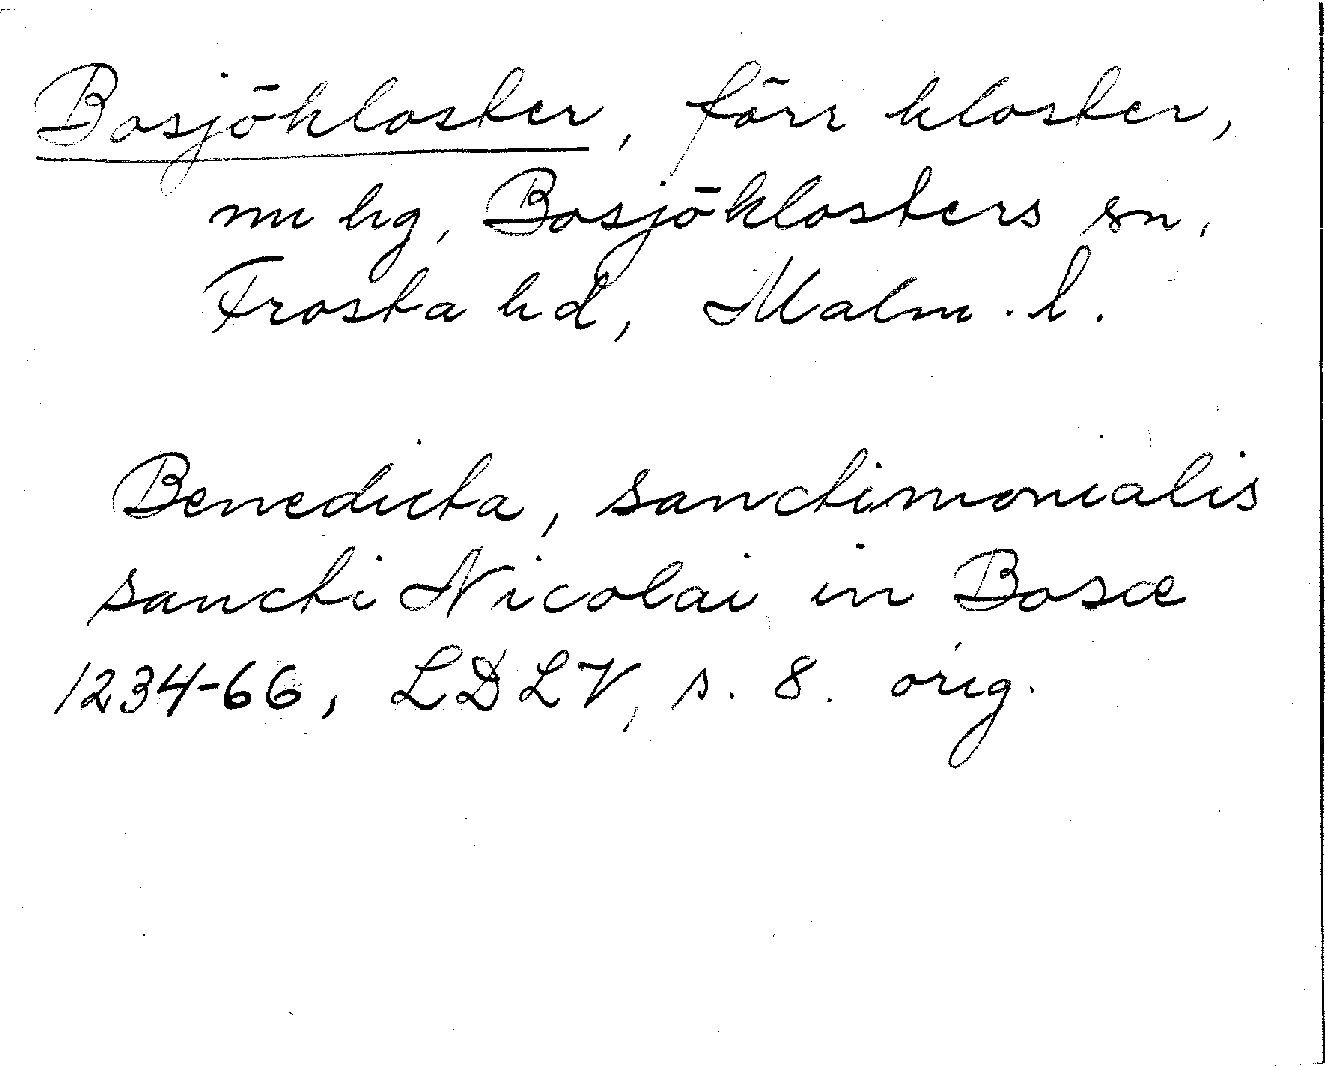 Bosjökloster, förr kloster,
nu hg, Bosjöklosters sn,
Frosta hd, Malm. l.
Benedicta, sanctimonialis
sancti Nicolai in Bosœ
1234-66, LDLV, s. 8. orig.